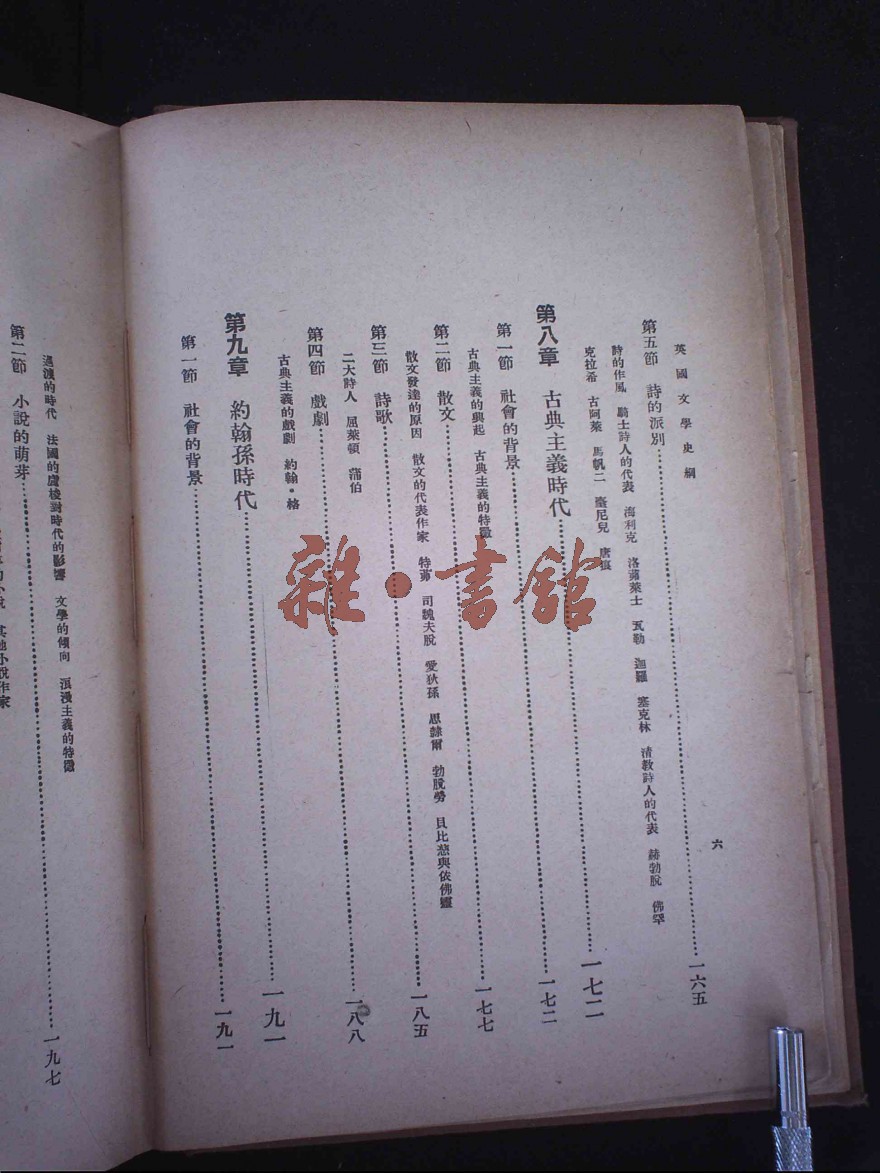 英國文學史綱
六
第五節 詩的派別 一六五
詩的作風 騎士詩人的代表 海利克 洛蒲萊士 瓦勒 迦羅 塞克林 清教詩人的代表 赫勃脫 佛罕
克拉希 古阿萊 馬帆二 臺尼兒 唐
第八章 古典主義時代 一七二
第一節 社會的背景 一七二
古典主義的興起 古典主義的特徵
第二節 散文 一七七
散文發達的原因 散文的代表作家 特茀 司魏夫脫 愛狄孫 思隸爾 勃脫勞 貝比慈與依佛靈
第三節 詩歌 一八五
二大詩人 屈萊頓 蒲伯
第四節 戲劇 一八八
古典主義的戲劇 約翰·格
第九章 約翰孫時代 一九一
第一節 社會的背景 一九一
過渡的時代 法國的盧梭對時代的影響 文學的傾向 浪漫主義的特徵
第二節 小說的萌芽 一九七
小說 其他小說作家
雜·書館